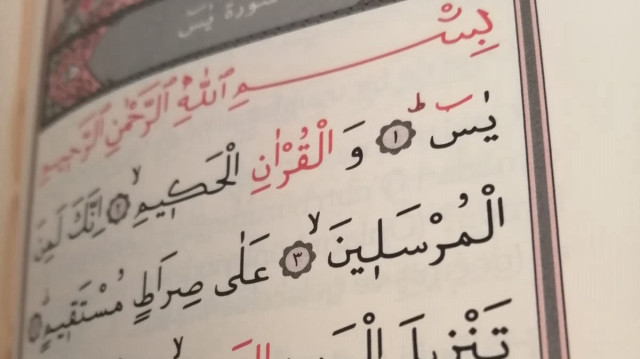 سورة يٰسٓ
بِسْمِ اللّٰهِ الرَّحْمٰنِ الرَّحِيمِ
يٰسٓ ۚ ﴿١﴾ وَالْقُرْاٰنِ الْحَكٖيمِۙ ﴿٢﴾ اِنَّكَ لَمِنَ
الْمُرْسَلٖينَۙ ﴿٣﴾ عَلٰى صِرَاطٍ مُسْتَقٖيمٍ
تَنْزٖيلَ